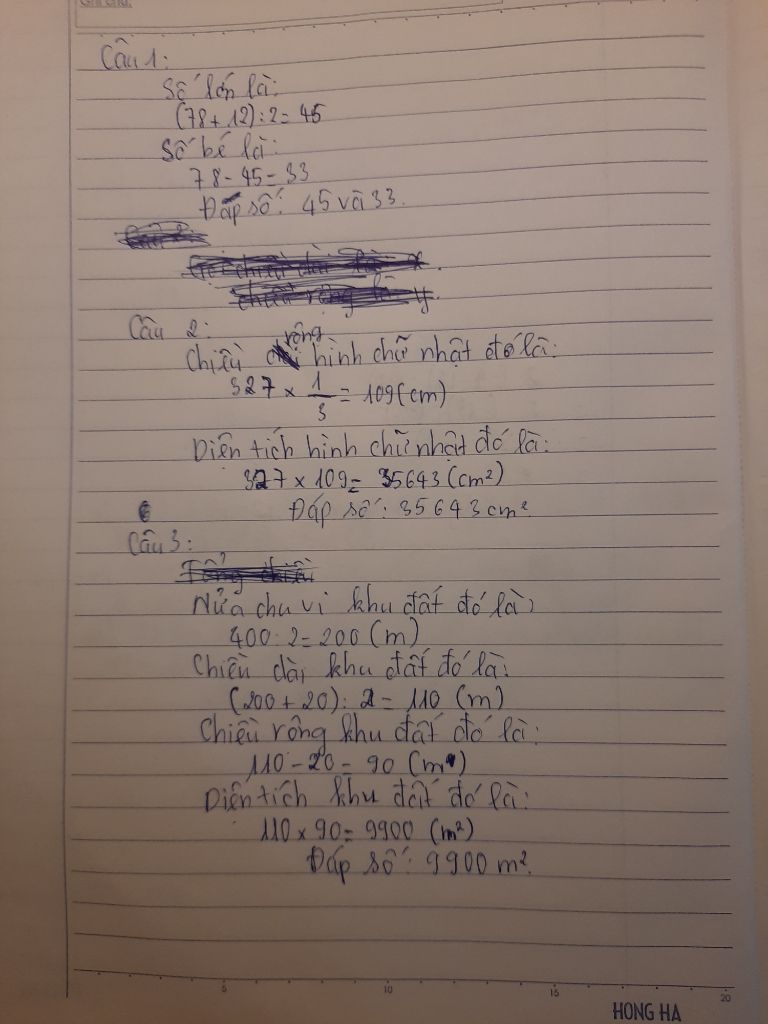 Ghi chú:
Câu 1:
Số lớn là:
(78 + 12) : 2 = 45
Số bé là:
78 - 45 = 33
Đáp số: 45 và 33.
Câu 2:
Chiều rộng hình chữ nhật đó là:
327 × 1/3 = 109 (cm)
Diện tích hình chữ nhật đó là:
327 × 109 = 35643 (cm²)
Đáp số: 35643 cm².
Câu 3:
Nửa chu vi khu đất đó là:
400 : 2 = 200 (m)
Chiều dài khu đất đó là:
(200 + 20) : 2 = 110 (m)
Chiều rông khu đất đó là:
110 - 20 = 90 (m)
Diện tích khu đất đó là:
110 × 90 = 9900 (m²)
Đáp số: 9900 m².
5 10 15 20
HONG HA